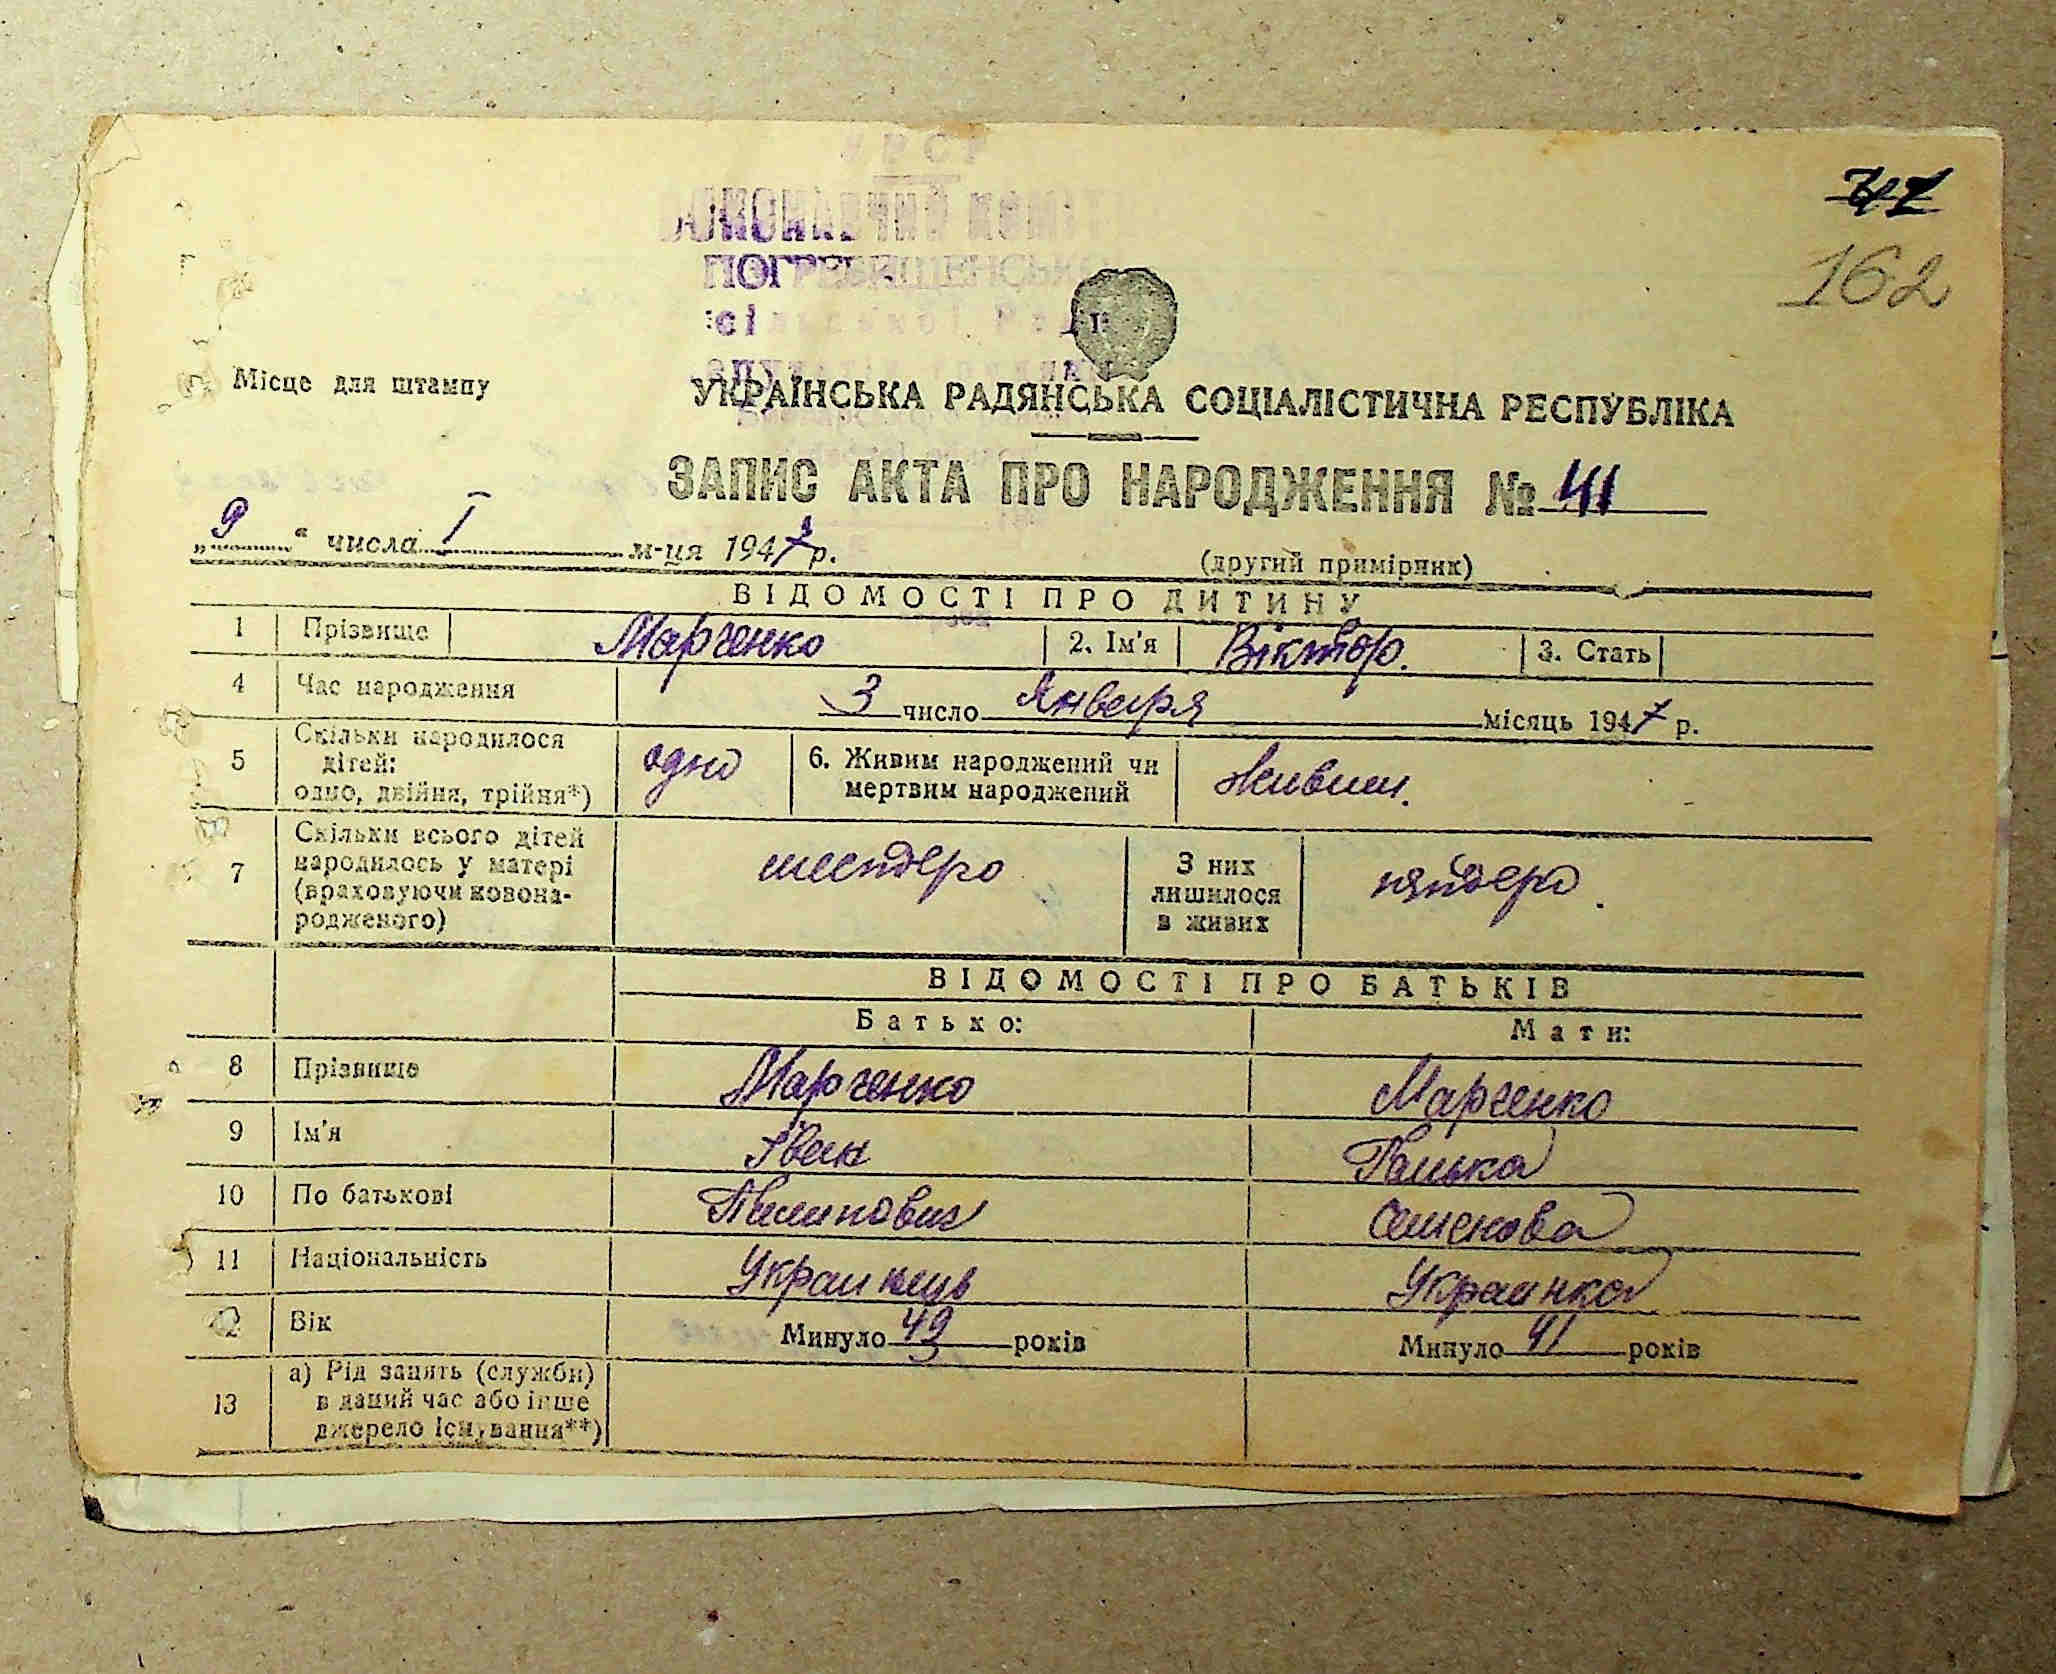 РСР
ВИКОНАВЧИЙ КОМІТ
ПОГРЕБИЩЕНСЬКО
162
Місце для штампу
УКРАЇНСЬКА РАДЯНСЬКА СОЦІАЛІСТИЧНА РЕСПУБЛІКА
ЗАПИС АКТА ПРО НАРОДЖЕННЯ № 41
„9“ числа I м-ця 1947 р.
(другий примірник)
ВІДОМОСТІ ПРО ДИТИНУ
1 Прізвище Марченко 2. Ім'я Віктор. 3. Стать
4 Час народження 3 число Января місяць 1947 р.
5 Скільки народилося дітей: одно, двійня, трійня*) одно 6. Живим народжений чи мертвим народжений живим.
7 Скільки всього дітей народилось у матері (враховуючи новонародженого) шестеро З них лишилося в живих пятеро.
ВІДОМОСТІ ПРО БАТЬКІВ
Батько: Мати:
8 Прізвище Марченко Марченко
9 Ім'я Іван Ганька
10 По батькові Пилипович Семенова
11 Національність Украинець Украинка
12 Вік Минуло 49 років Минуло 41 років
13 а) Рід занять (служби) в даний час або інше джерело існування**)